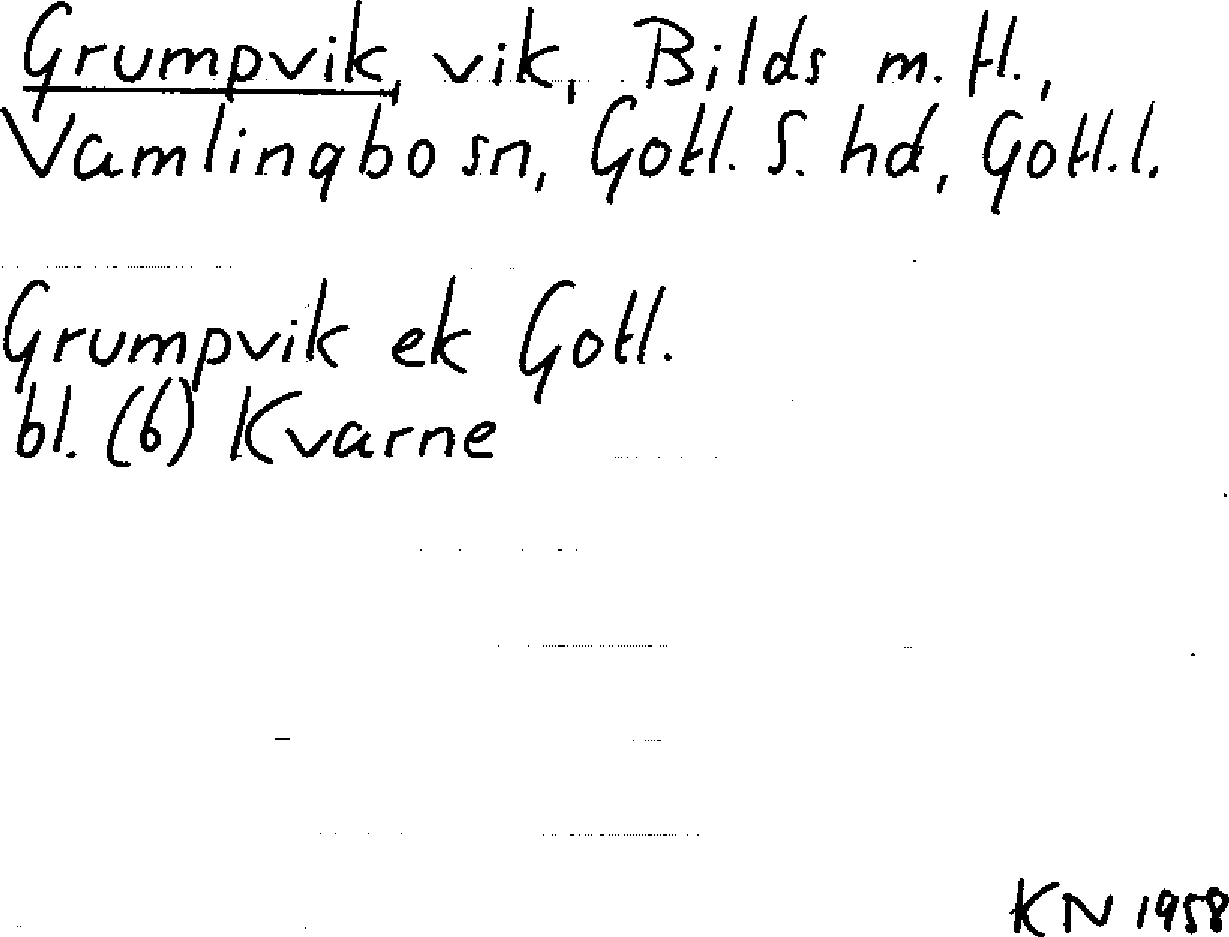 Grumpvik, vik, Bilds m. fl.,
Vamlingbo sn, Gotl. S. hd, Gotl. l.
Grumpvik ek Gotl.
bl. (6) Kvarne
KN 1958